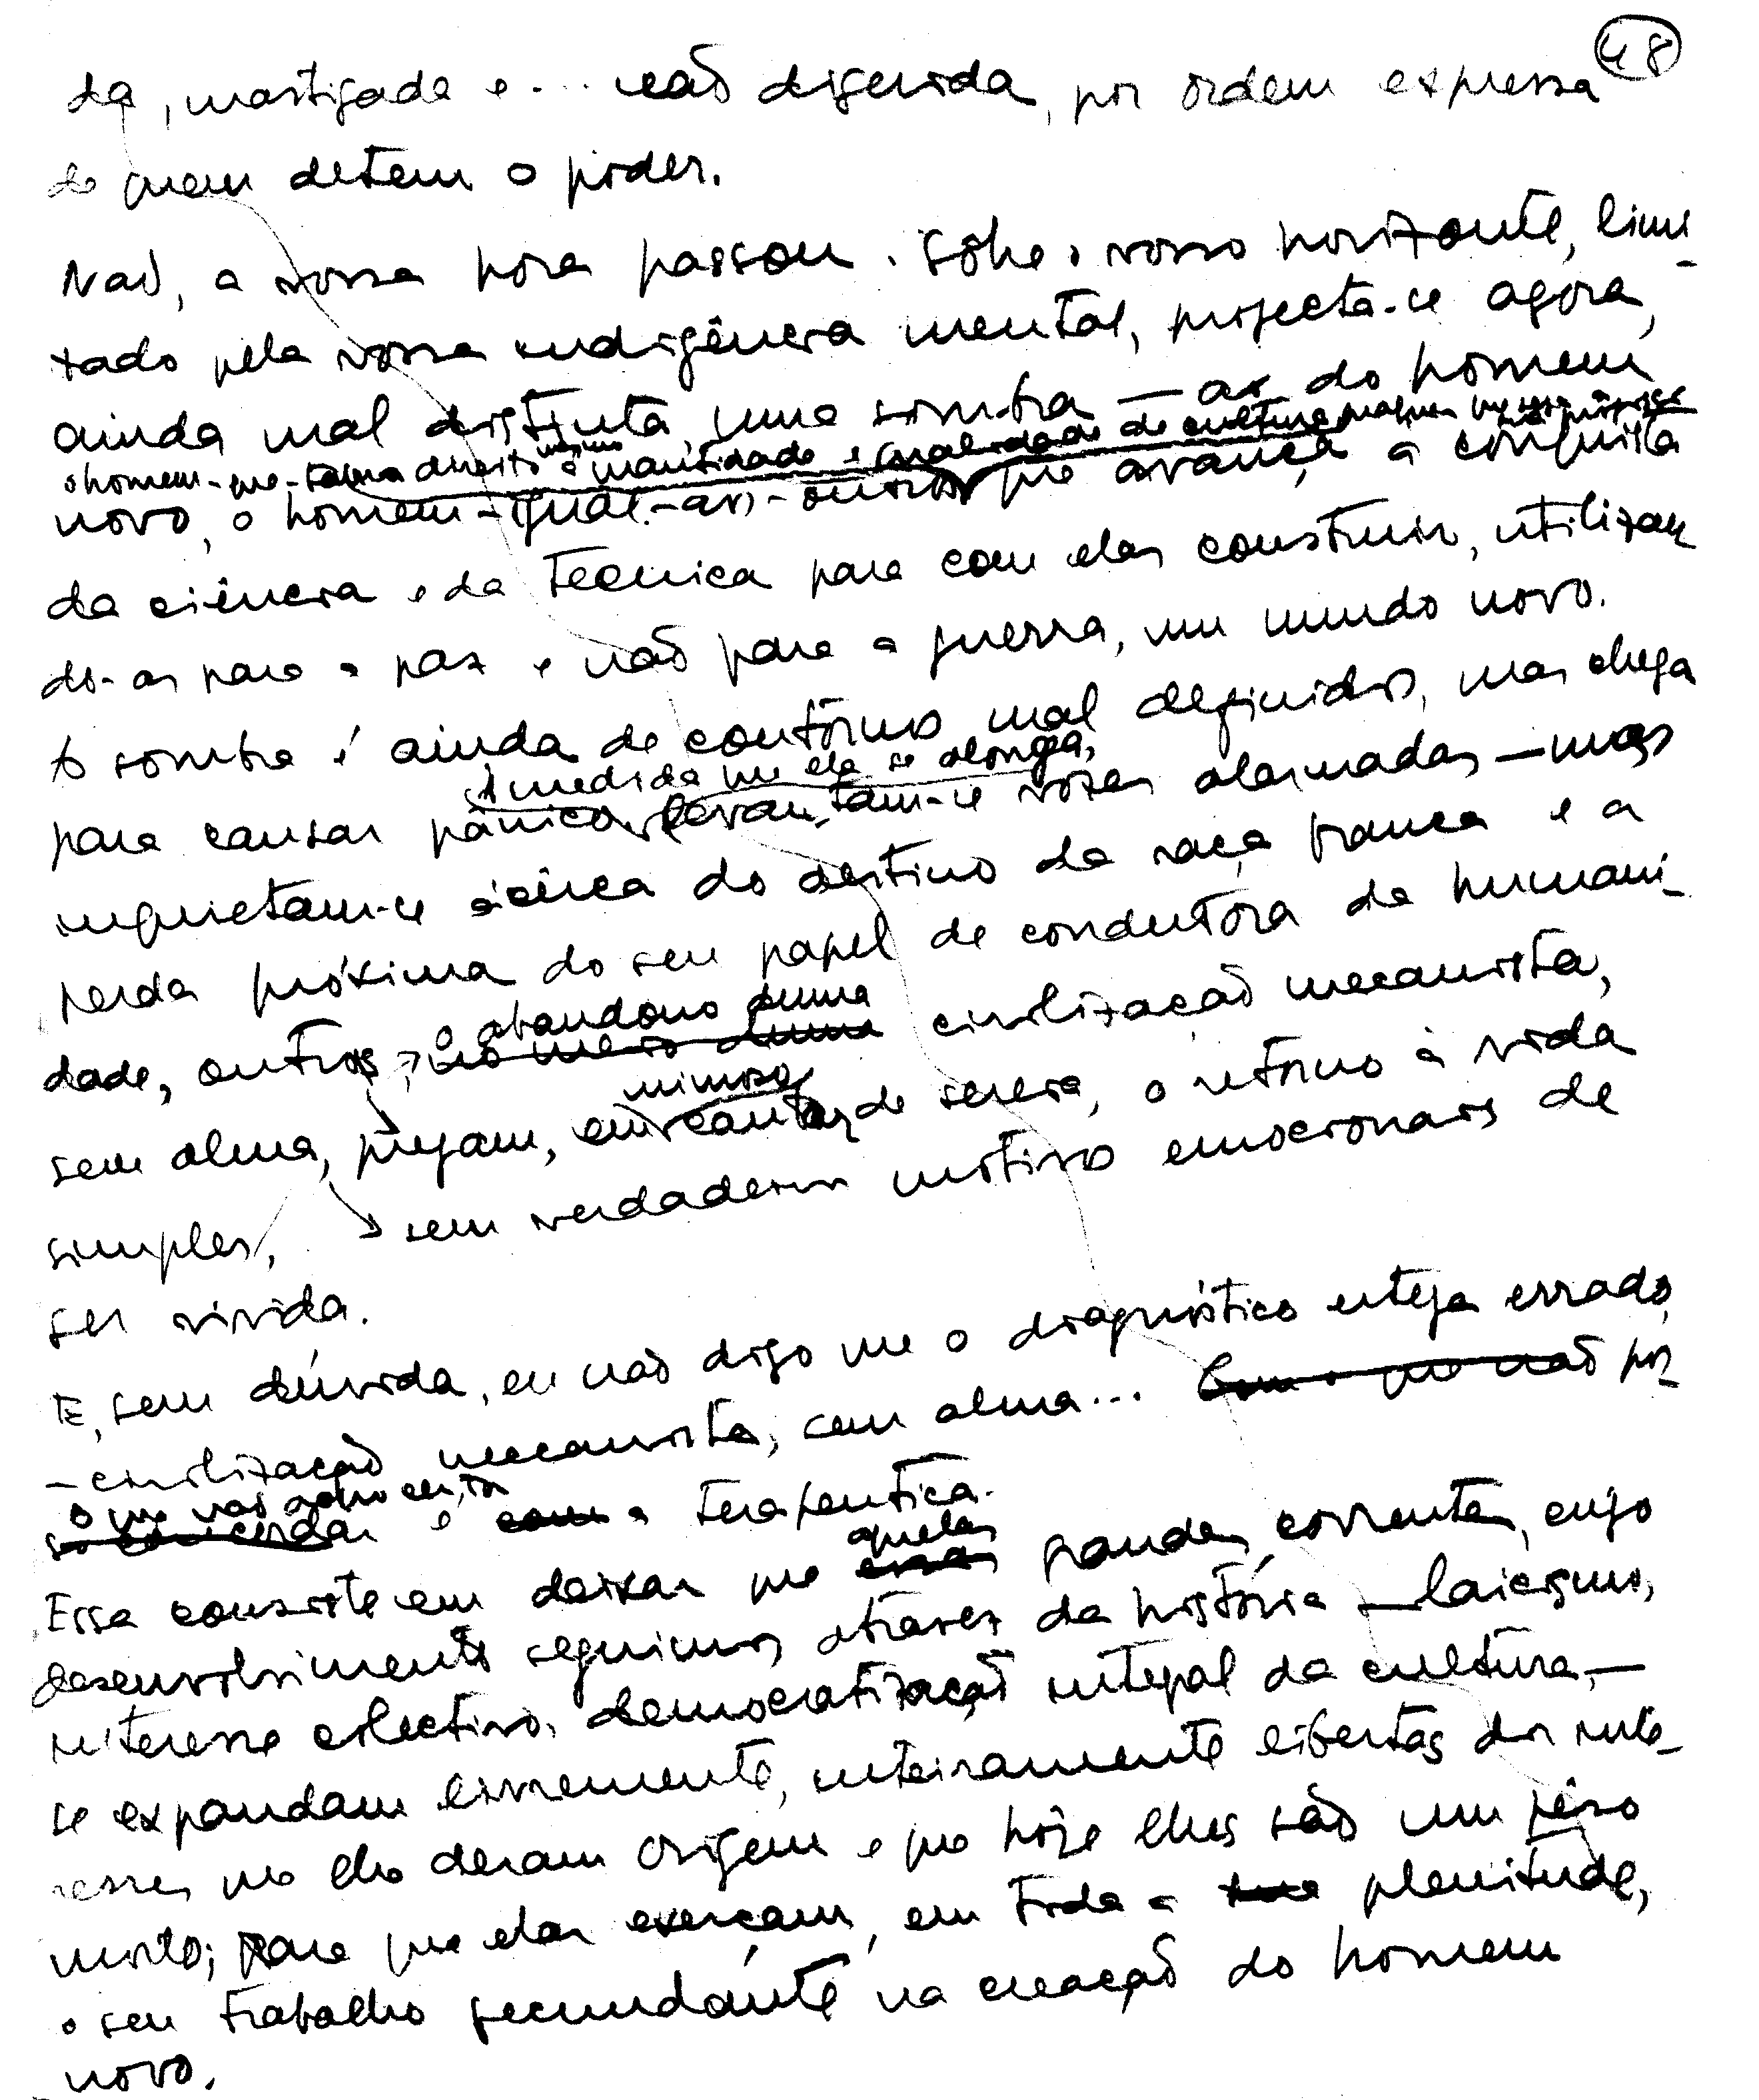 48
da, mastigada e ... não digerida, por ordem expressa
de quem detem o poder.
Não, a vossa hora passou. Sôbre o vosso horizonte, limi-
tado pela vossa indigência mental, projecta-se agora,
ainda mal distinta, uma sombra — a do homem
o homem-que-tem direito mesmo à quantidade e qualidade de cultura
novo, o homem-igual-aos-outros que avança à conquista
da ciência e da técnica para com elas construir, utilizan
do-as para a paz e não para a guerra, um mundo novo.
A sombra é ainda de contôrnos mal definidos, mas chega
à medida que ela se alonga,
para causar pânico, levantam-se vozes alarmadas — umas
inquietam-se àcêrca do destino da raça branca e a
perda próxima do seu papel de condutora da humani-
o abandono duma
dade, outros, no meio duma civilização mecanista,
mimoso
sem alma, pregam, em canto de sereia, o retôrno à vida
simples, sem verdadeiros motivos emocionais de
ser vivida.
E, sem dúvida, eu não digo que o diagnóstico esteja errado
— civilização mecanista, sem alma... Com o que não pos
O que não acho certa
so concordar é com a terapeutica.
aquelas
Essa consiste em deixar que essas grandes correntes, cujo
desenvolvimento seguimos atravez da história — laicismo,
interesse colectivo, democratização integral da cultura, —
se expandam livremente, inteiramente libertas dos inte-
resses que lhe deram origem e que hoje lhes são um pêso
morto; para que elas exerçam, em toda a sua plenitude,
o seu trabalho fecundante na creação do homem
novo.